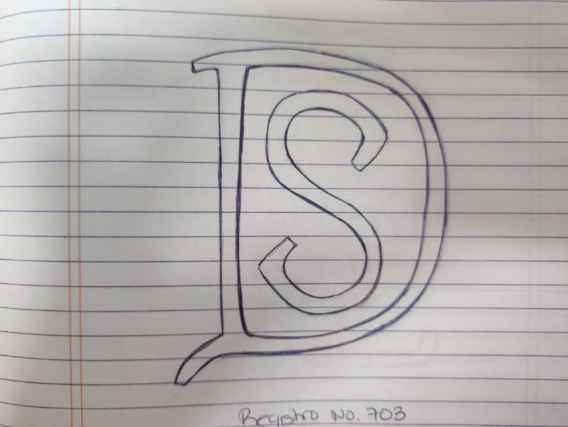 DS
Registro No. 703